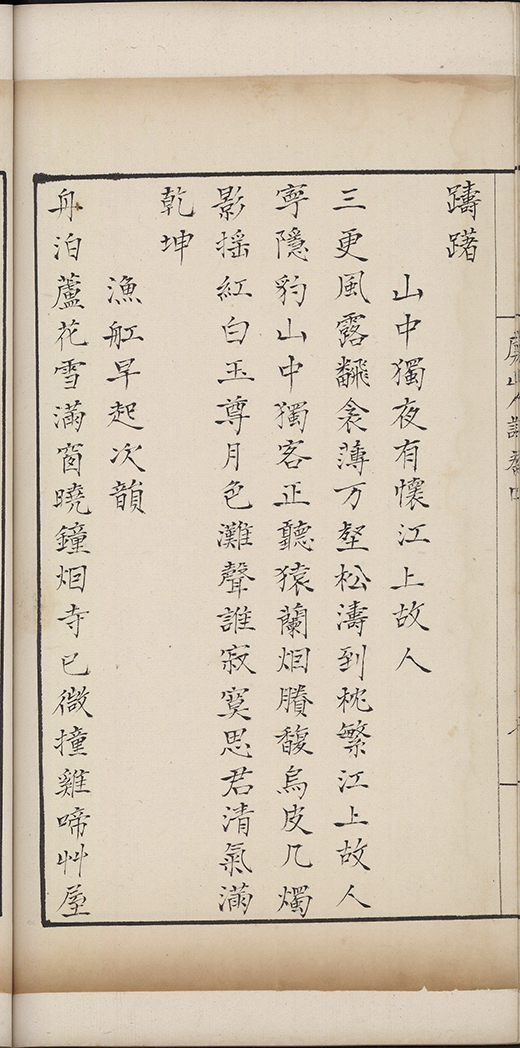 躊躇
山中獨夜有懷江上故人
三更風露飜衾薄万壑松濤到枕繁江上故人
寧隱豹山中獨客正聽猿蘭烟賸馥烏皮几燭
影揺紅白玉尊月色灘聲誰寂寞思君清氣滿
乾坤
漁舡早起次韻
舟泊蘆花雪滿窗曉鐘烟寺已微撞雞啼艸屋